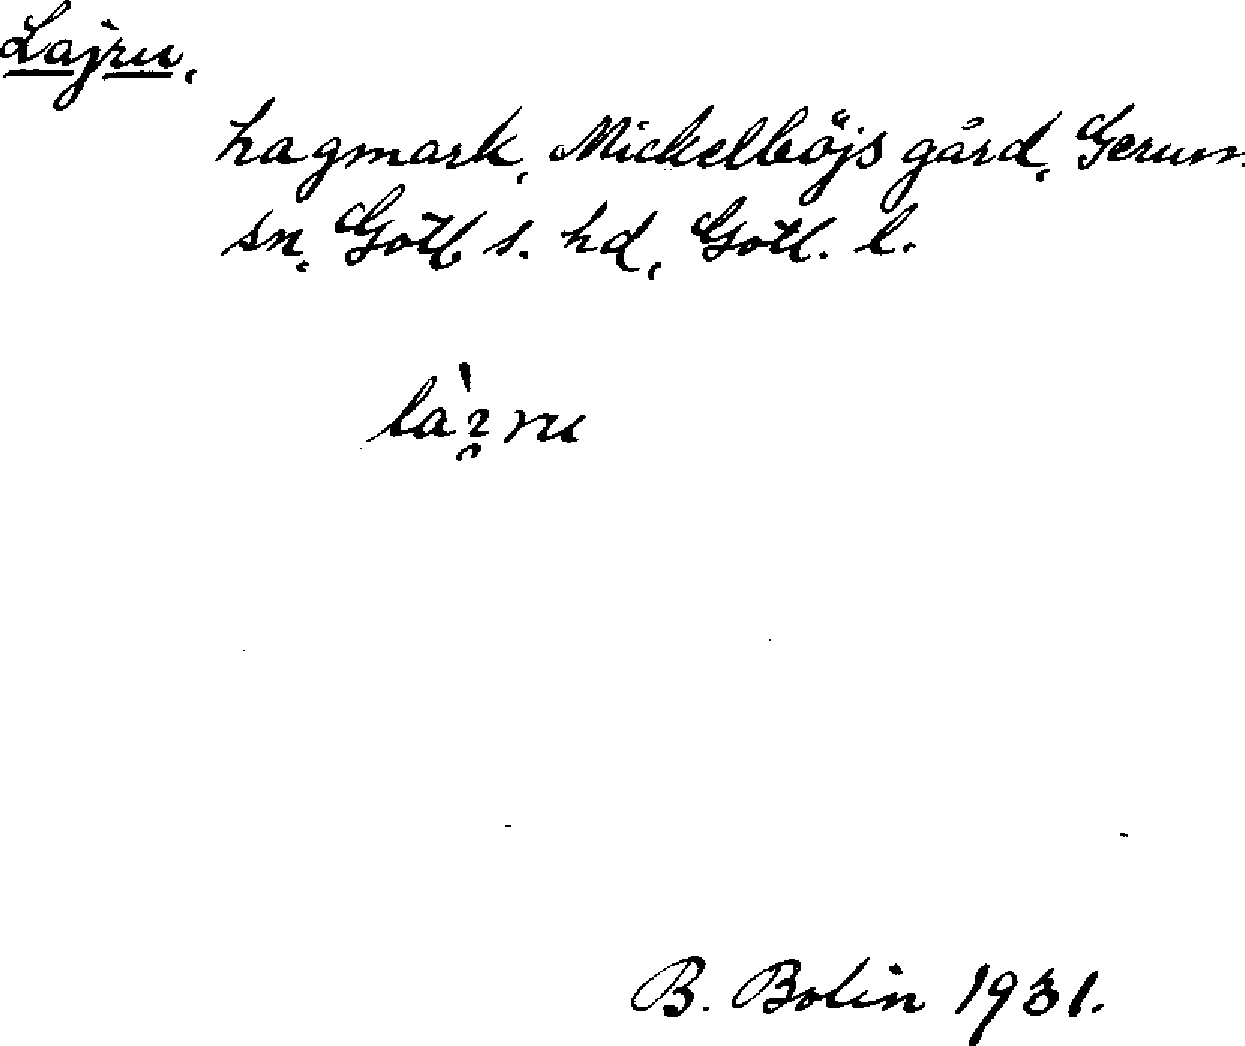 Lajru,
hagmark, Mickelböjs gård, Gerum
sn, Gotl s. hd, Gotl. l.
B. Bolin 1931.